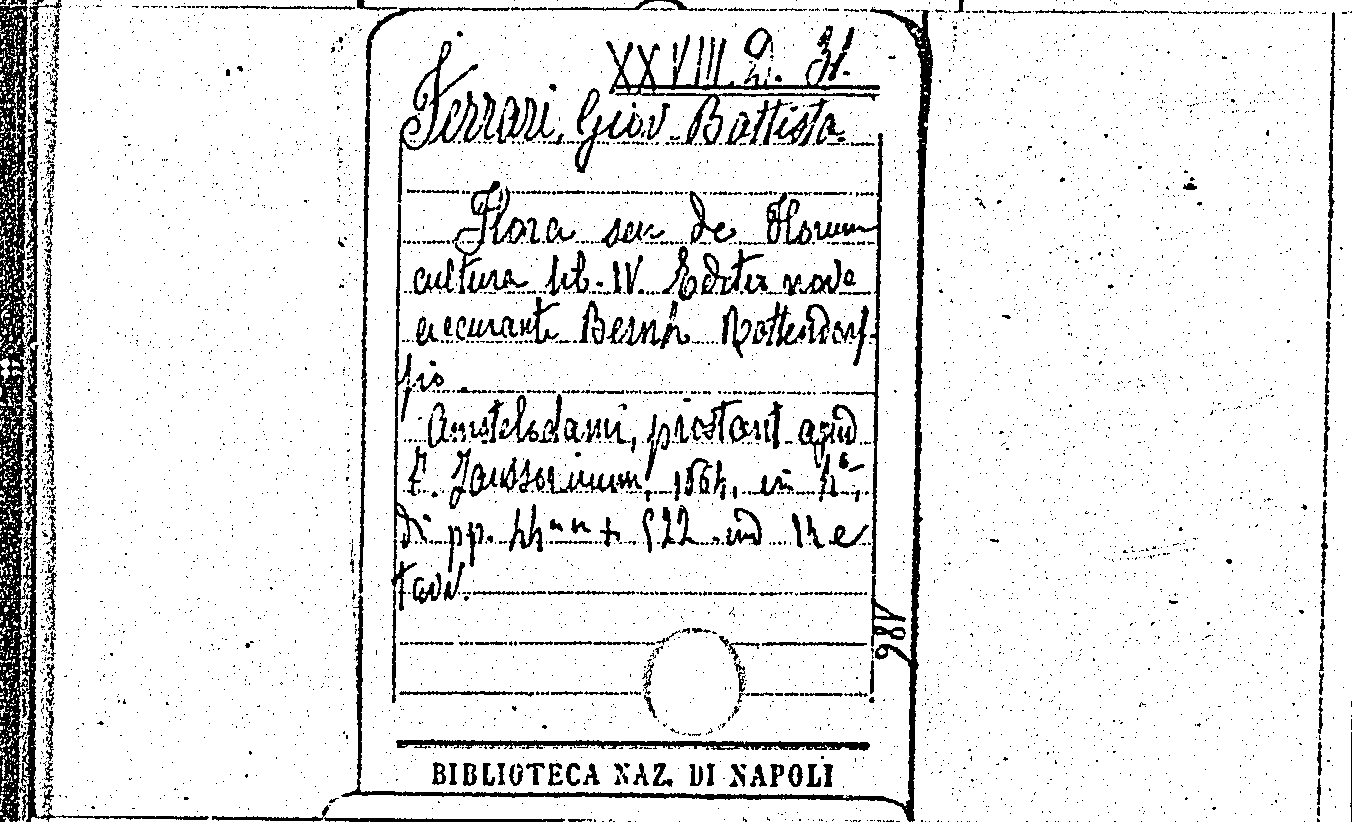 XXVIII. D. 31.
Ferrari, Giov. Battista
Flora seu de Florum
cultura lib. IV. Editio nova
accurante Bernh Rottendorf-
fio.
Amstelodami, prostant apud
F. Janssonium, 1664, in 4°,
di pp. nn + 522 ind
tavv.
186
BIBLIOTECA NAZ. DI NAPOLI